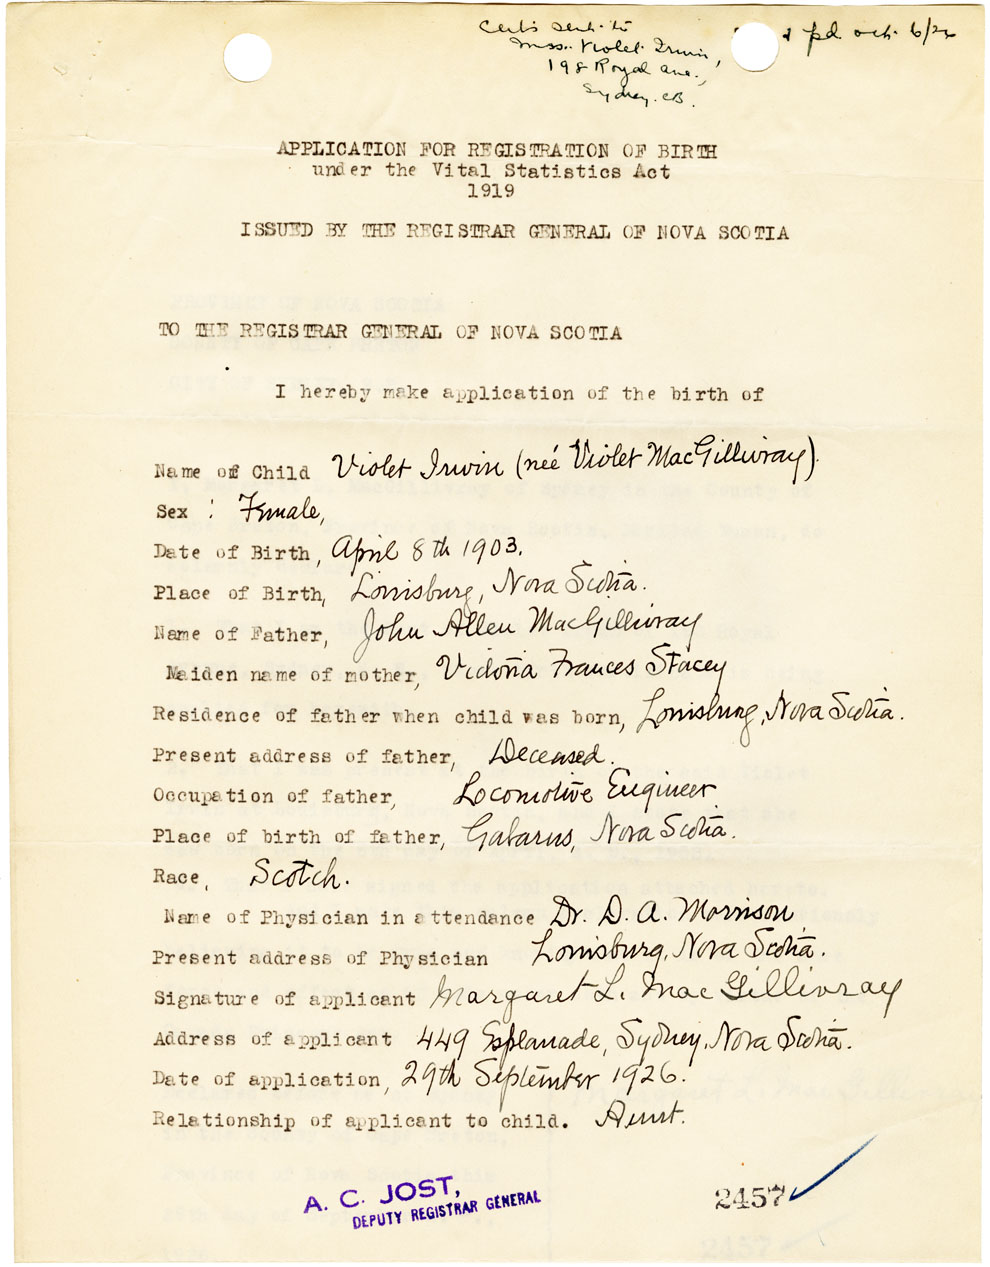 Cert's sent to
Miss. Violet Irwin,
198 Royal ave.,
Sydney. CB.
pd oct. 6/26
APPLICATION FOR REGISTRATION OF BIRTH
under the Vital Statistics Act
1919
ISSUED BY THE REGISTRAR GENERAL OF NOVA SCOTIA
TO THE REGISTRAR GENERAL OF NOVA SCOTIA
I hereby make application of the birth of
Name of Child Violet Irwin (neé Violet MacGillivray)
Sex : Female,
Date of Birth, April 8th 1903.
Place of Birth, Louisburg, Nova Scotia.
Name of Father, John Allen MacGillivray
Maiden name of mother, Victoria Frances Stacey
Residence of father when child was born, Louisburg, Nova Scotia.
Present address of father, Deceased.
Occupation of father, Locomotive Engineer
Place of birth of father, Gabarus, Nova Scotia.
Race, Scotch.
Name of Physician in attendance Dr. D. A. Morrison
Present address of Physician Louisburg, Nova Scotia.
Signature of applicant Margaret L. MacGillivray
Address of applicant 449 Esplanade, Sydney, Nova Scotia.
Date of application, 29th September 1926.
Relationship of applicant to child. Aunt.
A. C. JOST,
DEPUTY REGISTRAR GENERAL
2457